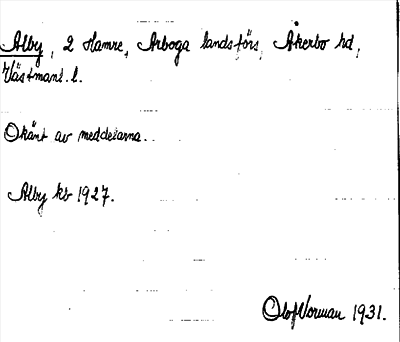 Alby, 2 Hamre, Arboga landsförs, Åkerbo hd,
Västmanl. l.
Okänt av meddelarna.
Alby kb 1927.
Olof Norman 1931.